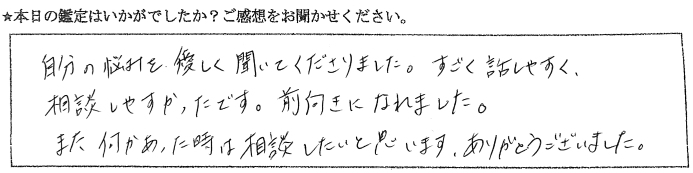 ★本日の鑑定はいかがでしたか？ご感想をお聞かせください。
自分の悩みを優しく聞いてくださりました。すごく話しやすく、
相談しやすかったです。前向きになれました。
また何かあった時は相談したいと思います、ありがとうございました。